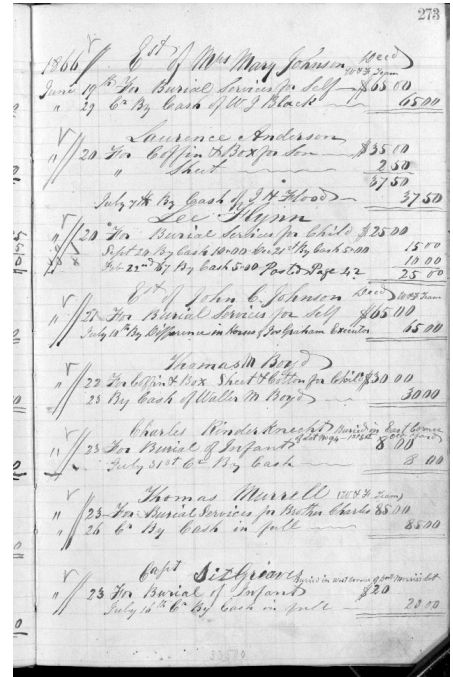 273
1866 Est of Mrs Mary Johnson Decd
W & F Team
June 19th For Burial Services for Self $65 00
" 29 Cr By Cash of W J Black 65 00
Laurence Anderson
" 20 For Coffin & Box for Son $35 00
" Sheet 2 50
37 50
July 7th By Cash of J H Flood 37 50
Lee Flynn
" 20 For Burial Services for Child $25 00
Sept 20 By Cash 10.00 Dec 21st By Cash 5.00 15 00
Feb 22nd 67 By Cash 5.00 Posted Page 42 10 00
25 00
Est of John C. Johnson Decd W & F Team
" 21 For Burial Services for Self $65 00
July 10th By Difference in Horses of Jos Graham Executor 65 00
Thomas M Boyd
" 22 For Coffin & Box Sheet & Cotton for Child $30 00
23 By Cash of Walter M Boyd 30 00
Charles Kinderknecht Buried in East Corner
of Lot No 94
" 23 For Burial of Infant 8 00
July 31st Cr By Cash 8 00
Thomas Murrell Team
" 23 For Burial Services for Brother Charles 85 00
" 26 Cr By Cash in full 85 00
Capt Sitgriaves Buried in West Corner of Lot
" 23 For Burial of Infant $20
July 16th Cr By Cash in full 20 00